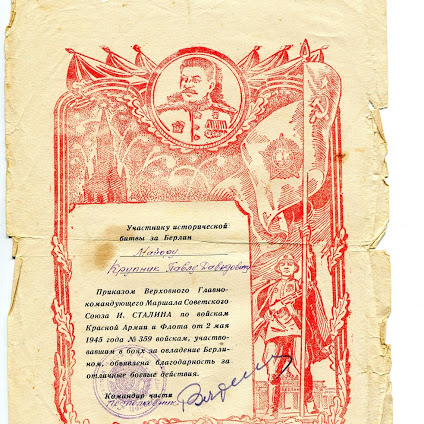 Участнику исторической
битвы за Берлин
Майору
Крупник Павле Давыдович
Приказом Верховного Главно-
командующего Маршала Советского
Союза И. СТАЛИНА по войскам
Красной Армии и Флота от 2 мая
1945 года № 359 войскам, участво-
вавшим в боях за овладение Берли-
ном, объявлена благодарность за
отличные боевые действия.
Командир части